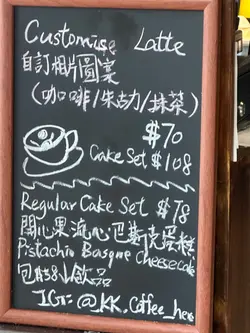 Customise Latte
自訂相片圖案
(咖啡/朱古力/抹茶)
$70
Cake Set $108
Regular Cake Set $78
開心果流心巴斯克蛋糕
Pistachio Basque Cheesecake
包 $38↓飲品
IG: @_KK.Coffee_here